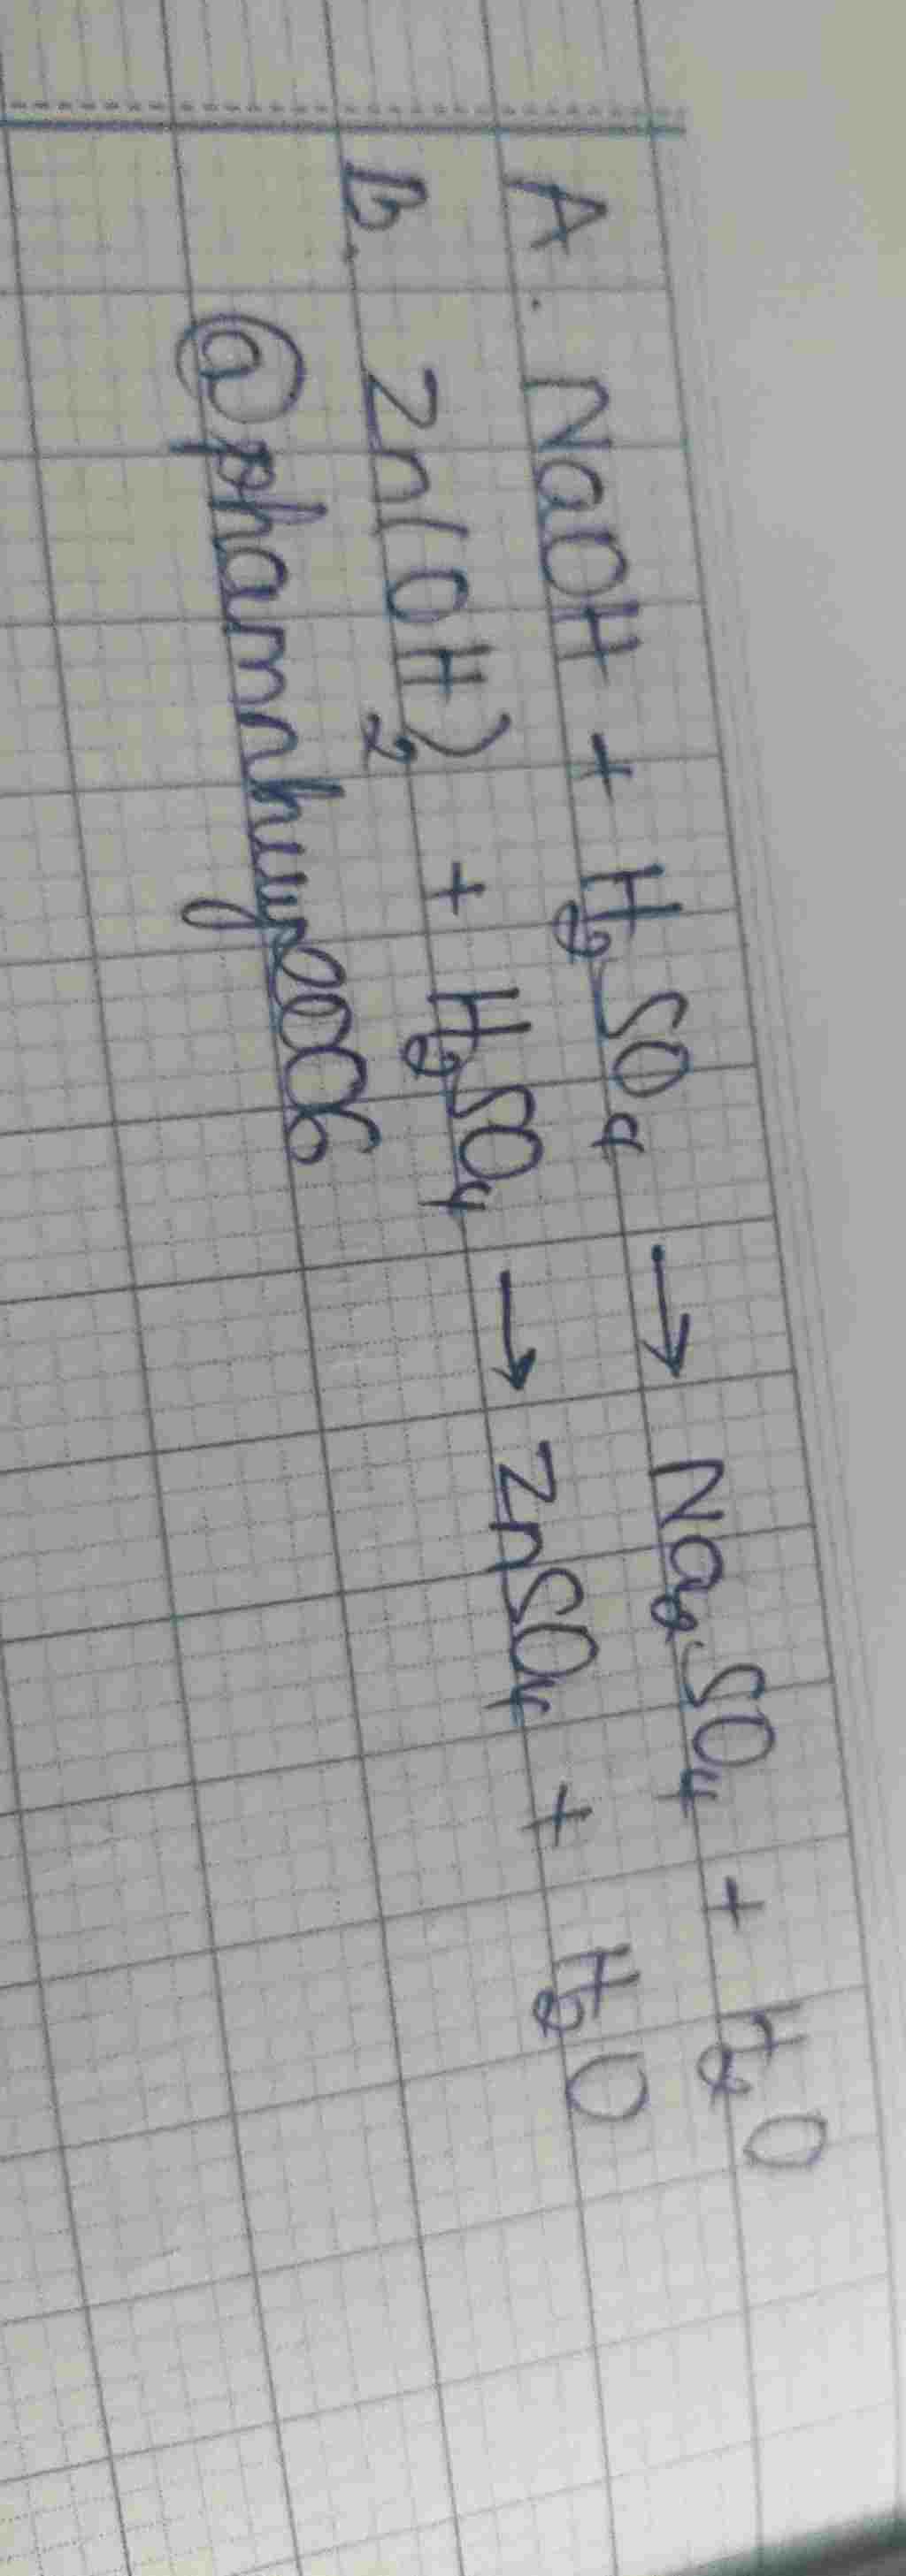 A. NaOH + H₂SO₄ → Na₂SO₄ + H₂O
B. Zn(OH)₂ + H₂SO₄ → ZnSO₄ + H₂O
@phamnhuy2006